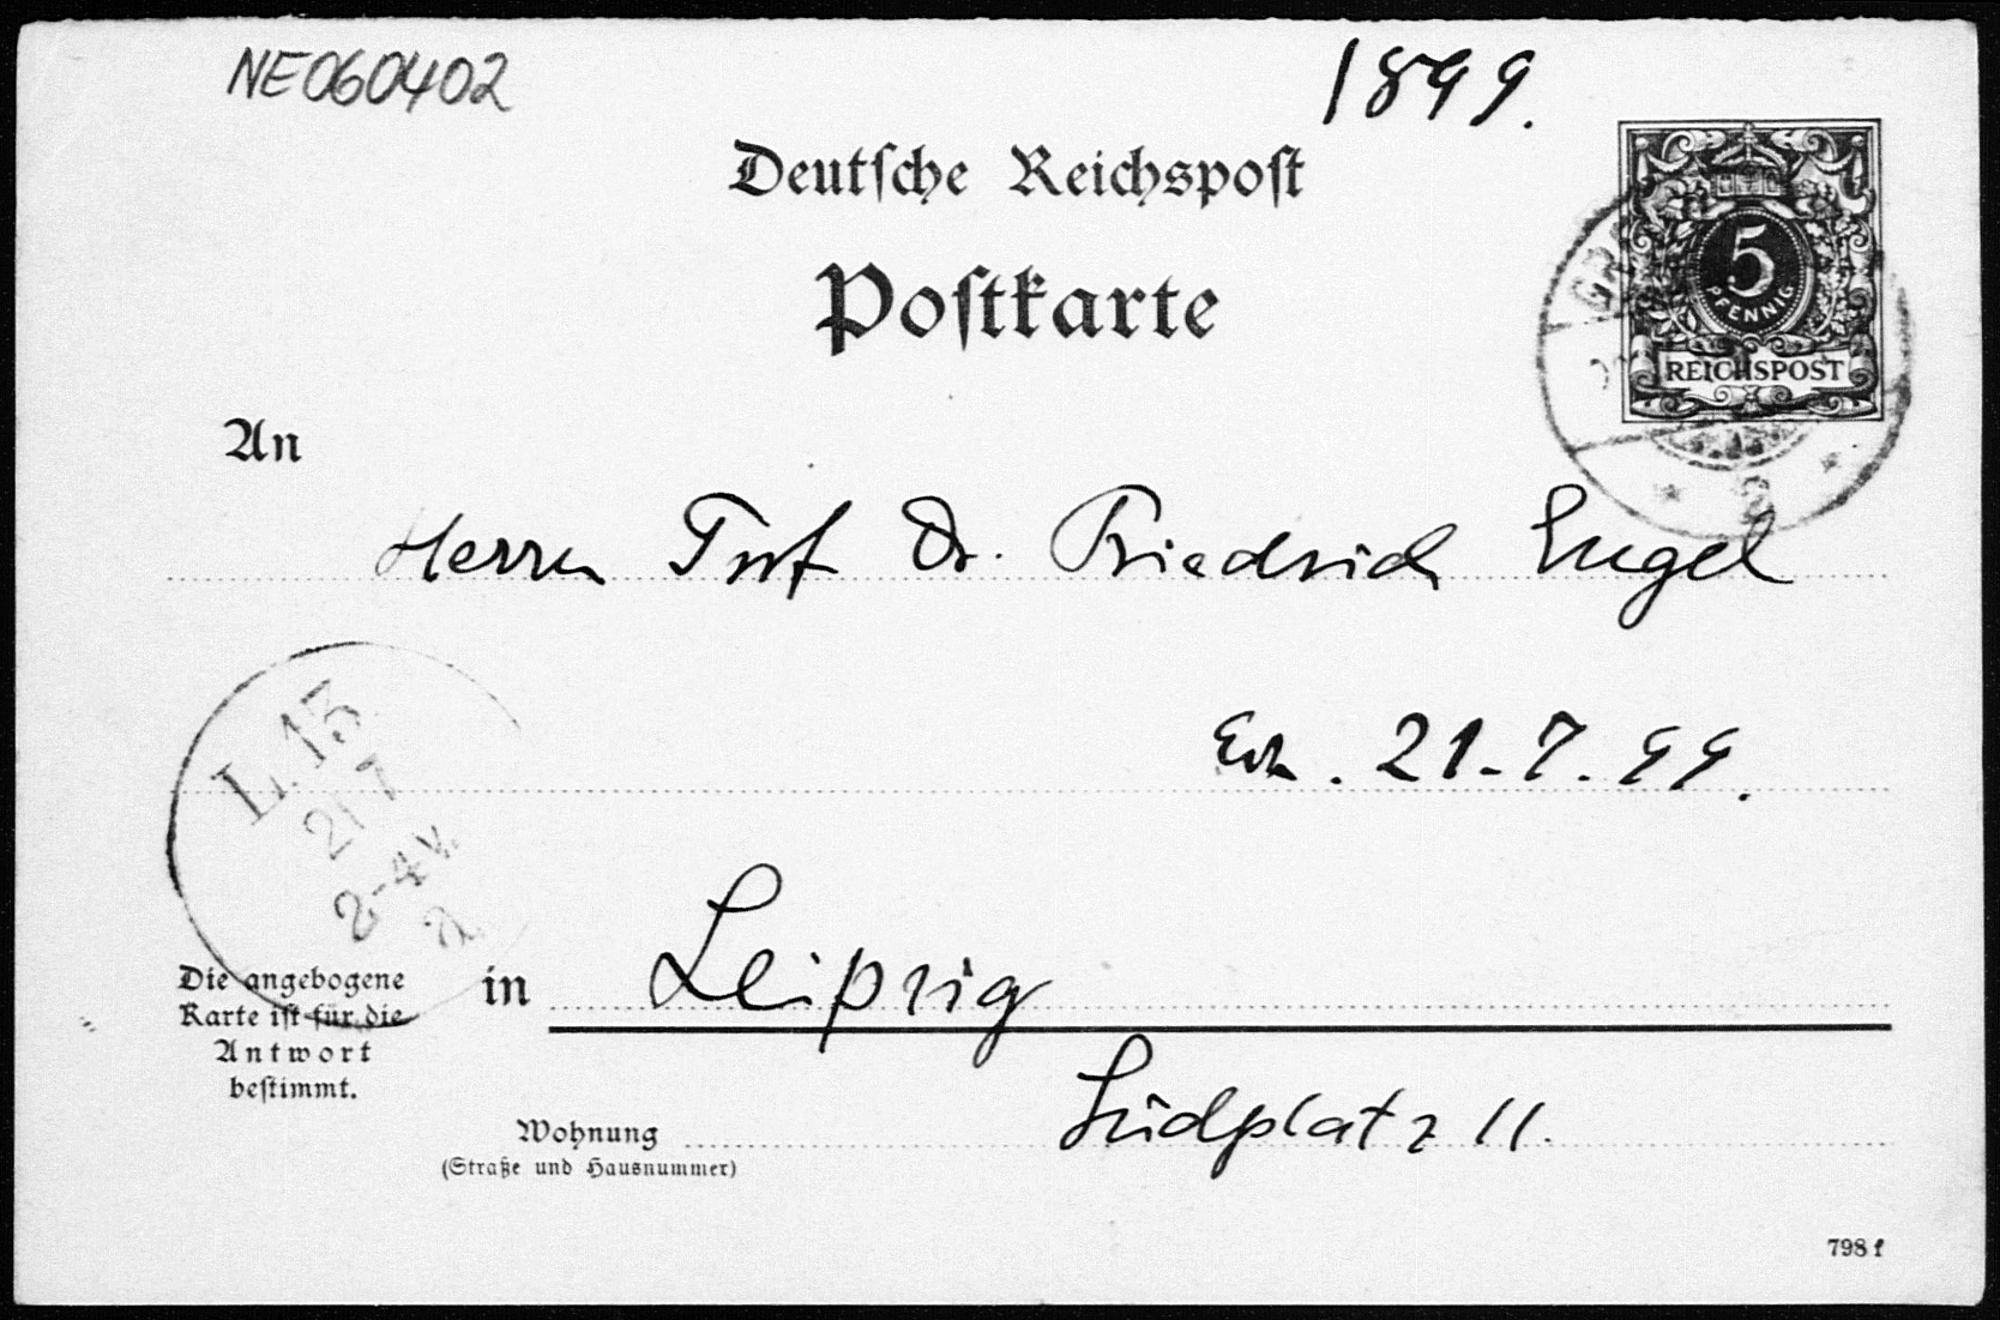 NE060402
1899.
Deutsche Reichspost
Postkarte
5
PFENNIG
REICHSPOST
An
Herrn Prof Dr. Friedrich Engel
Erh. 21.7.99.
L. 13
21 7
2-4 V.
Die angebogene
Karte ist für die
Antwort
bestimmt.
in Leipzig
Südplatz 11.
Wohnung
(Straße und Hausnummer)
798 f